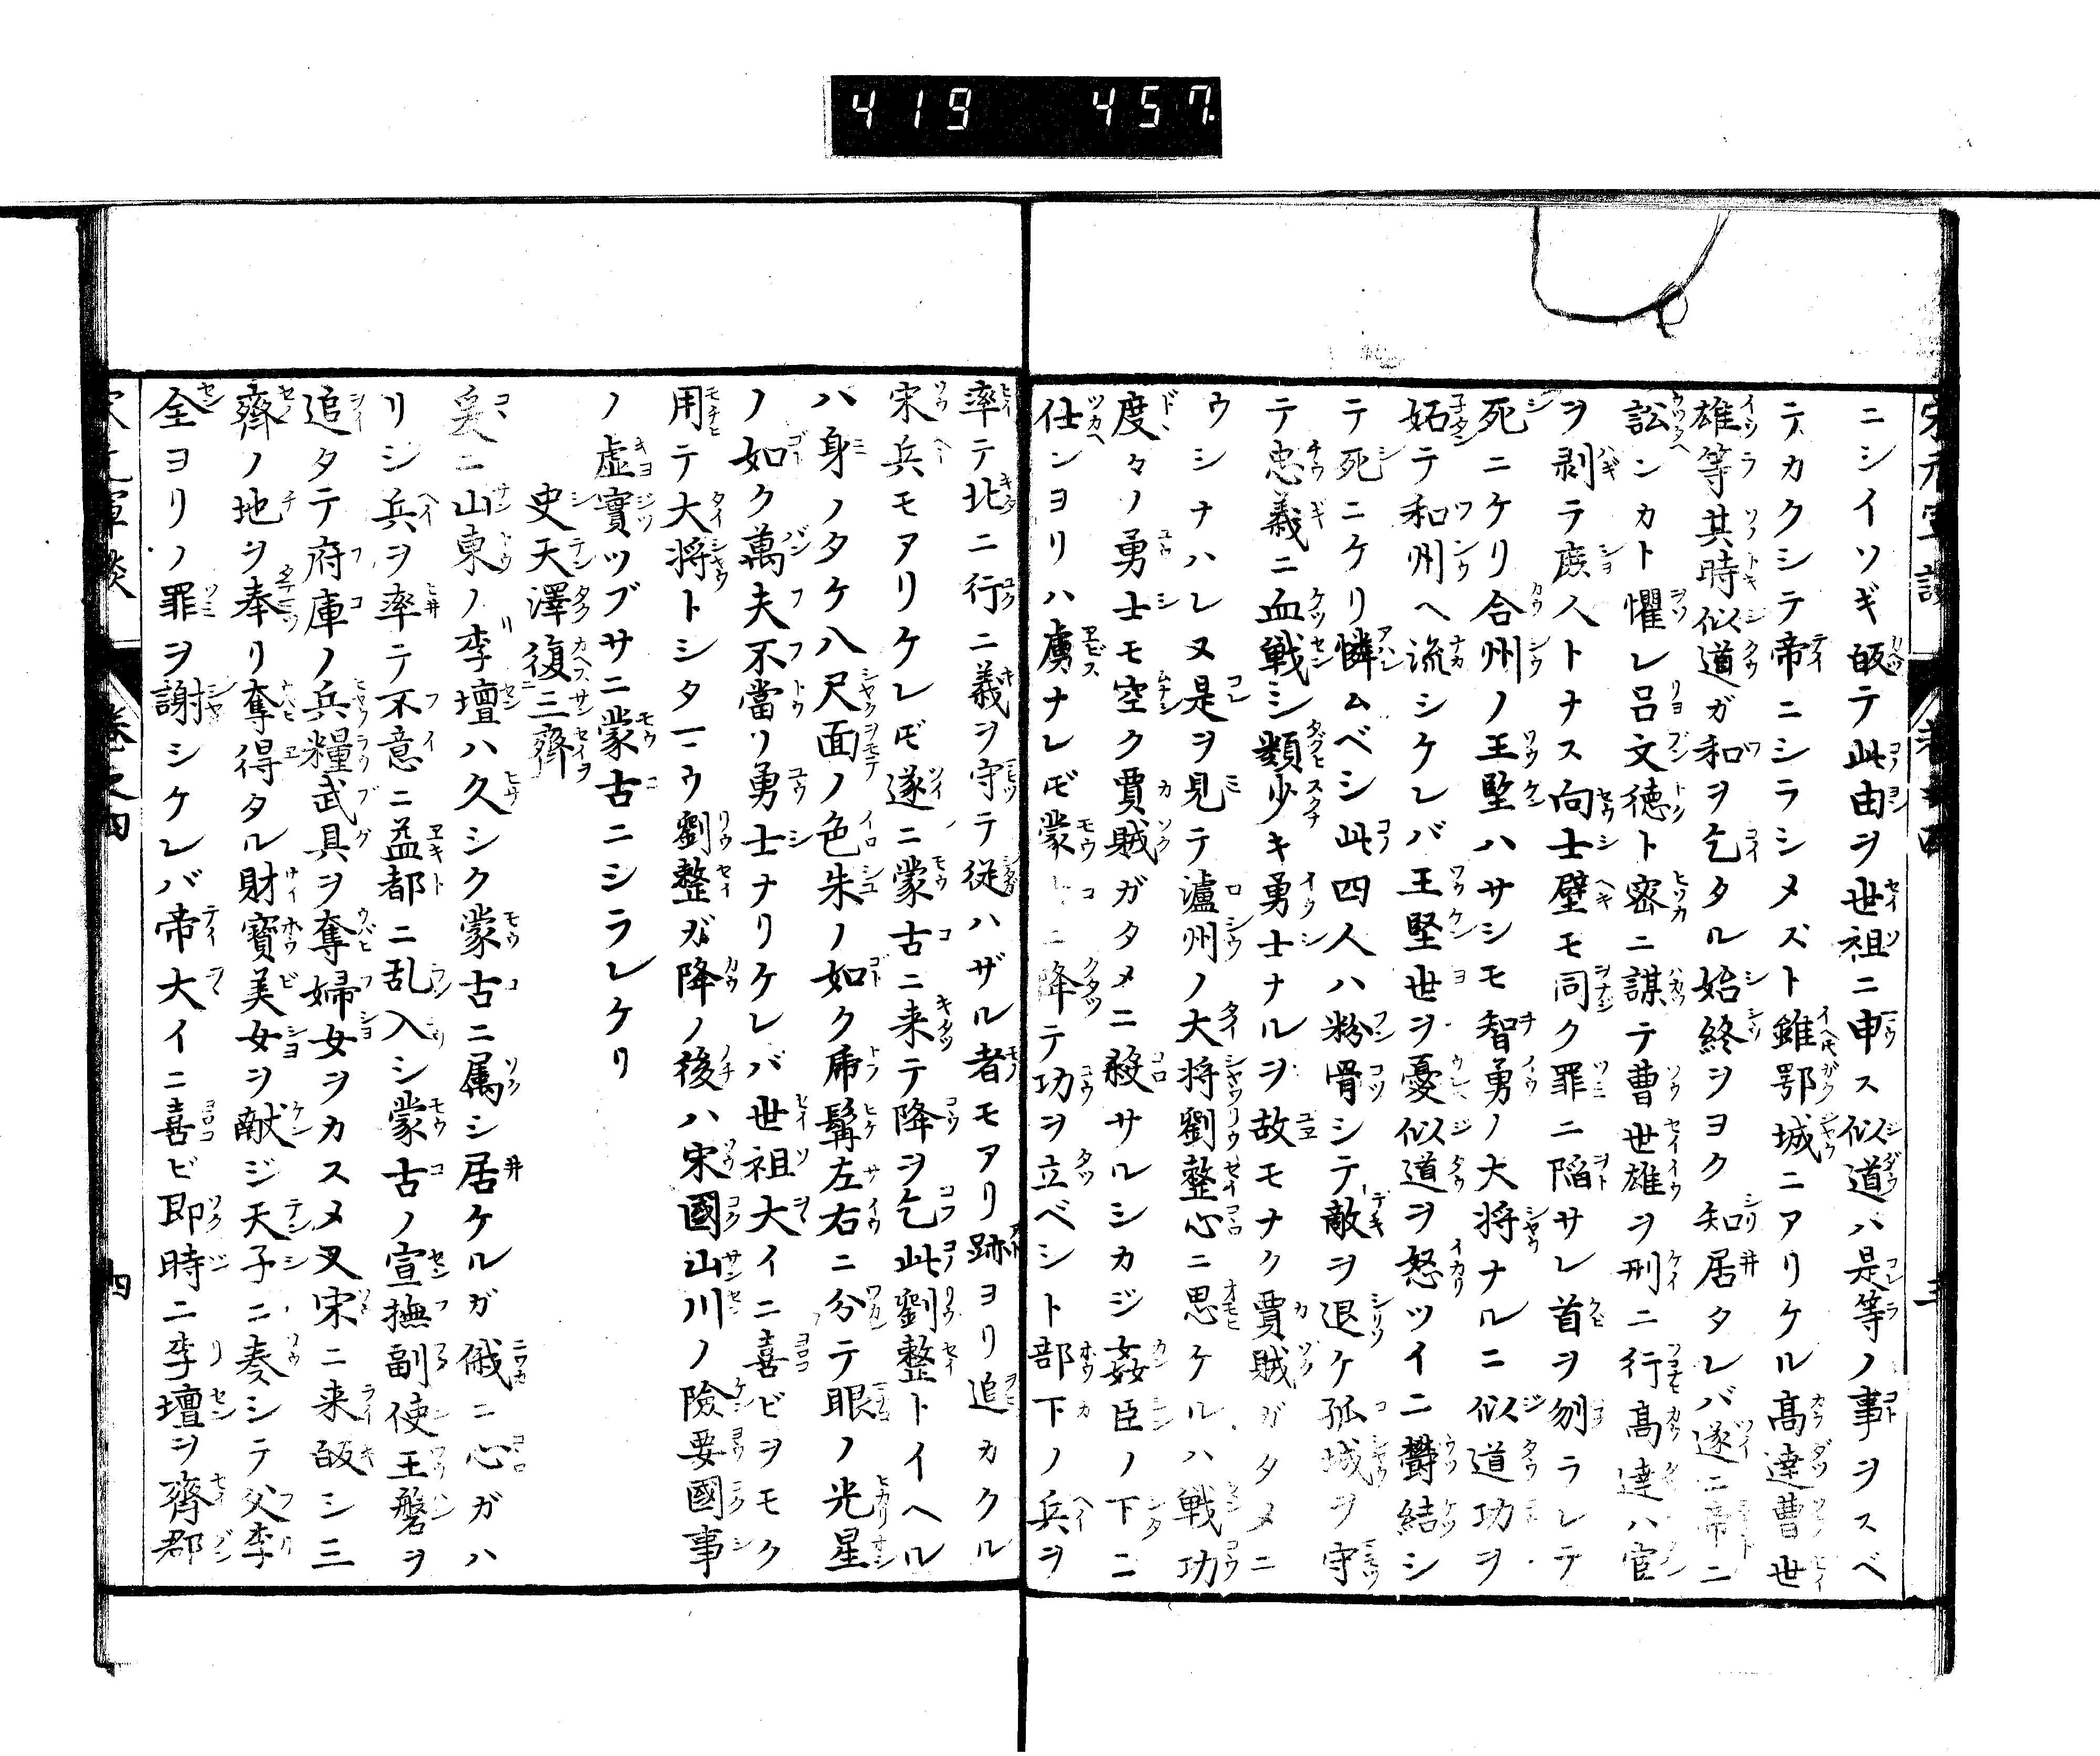 419 457.
ニシイソギ皈テ此由ヲ世祖ニ申ス似道ハ是等ノ事ヲスベ
テカクシテ帝ニシラシメズト雖鄂城ニアリケル高達曹世
雄等其時似道ガ和ヲ乞タル始終ヲヨク知居タレバ遂ニ帝ニ
訟ンカト懼レ呂文徳ト密ニ謀テ曹世雄ヲ刑ニ行高達ハ官
ヲ剥テ庶人トナス向士璧モ同ク罪ニ陥サレ首ヲ刎ラレテ
死ニケリ合州ノ王堅ハサシモ智勇ノ大将ナルニ似道功ヲ
妬テ和州ヘ流シケレバ王堅世ヲ憂似道ヲ怒ツイニ欝結シ
テ死ニケリ憐ムベシ此四人ハ粉骨シテ敵ヲ退ケ孤城ヲ守
テ忠義ニ血戦シ類少キ勇士ナルヲ故モナク賈賊ガタメニ
ウシナハレヌ是ヲ見テ瀘州ノ大将劉整心ニ思ケルハ戦功
度々ノ勇士モ空ク賈賊ガタメニ殺サルシカジ姦臣ノ下ニ
仕ンヨリハ虜ナレ𪜈蒙古ニ降テ功ヲ立ベシト部下ノ兵ヲ
率テ北ニ行ニ義ヲ守テ従ハザル者モアリ跡ヨリ追カクル
宋兵モアリケレ𪜈遂ニ蒙古ニ来テ降ヲ乞此劉整トイヘル
ハ身ノタケ八尺面ノ色朱ノ如ク乕髯左右ニ分テ眼ノ光星
ノ如ク萬夫不當ノ勇士ナリケレバ世祖大イニ喜ビヲモク
用テ大将トシタマウ劉整ガ降ノ後ハ宋國山川ノ險要國事
ノ虚實ツブサニ蒙古ニシラレケリ
史天澤復三齊
爰ニ山東ノ李壇ハ久シク蒙古ニ属シ居ケルガ俄ニ心ガハ
リシ兵ヲ率テ不意ニ益都ニ乱入シ蒙古ノ宣撫副使王磐ヲ
追タテ府庫ノ兵糧武具ヲ奪婦女ヲカスメ又宋ニ来皈シ三
齊ノ地ヲ奉リ奪得タル財寳美女ヲ献ジ天子ニ奏シテ父李
全ヨリノ罪ヲ謝シケレバ帝大イニ喜ビ即時ニ李壇ヲ齊郡
巻之四
四